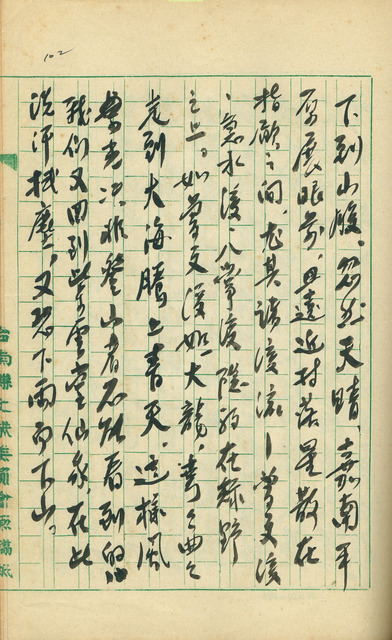 102
下到山腹。忽然天晴，嘉南平
原展眼前，且遠近村落星散在
指顧之間，尤其諸溪流—曾文溪
、急水溪、八掌溪隱約在綠野
之上。如曾文溪如大龍，彎彎曲曲
走到大海騰上青天。這樣風
景，非登山者不能看到的。
我们又回到紫雲堂仙家，在此
洗汗拭塵，又恐下雨而下山。
台南縣文獻委員會原稿紙